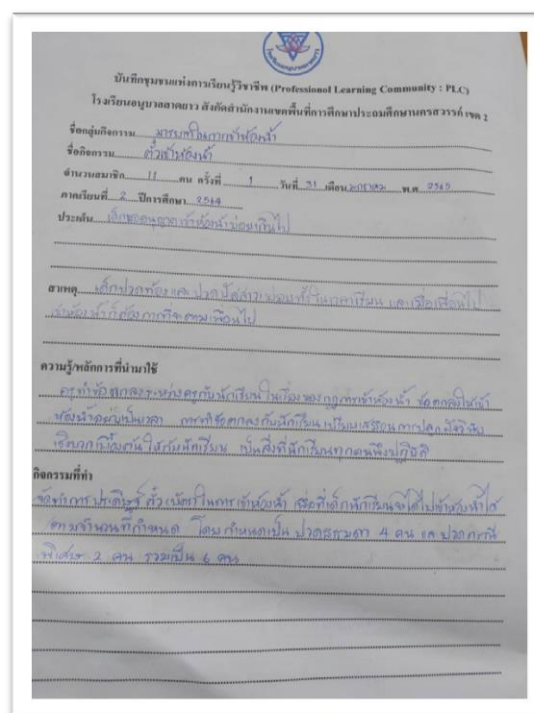 บันทึกชุมชนแห่งการเรียนรู้วิชาชีพ (Professional Learning Community : PLC)
โรงเรียนอนุบาลลาดยาว สังกัดสำนักงานเขตพื้นที่การศึกษาประถมศึกษานครสวรรค์ เขต 2
ชื่อกลุ่มกิจกรรม มารยาทในการเข้าห้องน้ำ
ชื่อกิจกรรม ตั๋วเข้าห้องน้ำ
จำนวนสมาชิก 11 คน ครั้งที่ 1 วันที่ 31 เดือน มกราคม พ.ศ. 2565
ภาคเรียนที่ 2 ปีการศึกษา 2564
ประเด็น เด็กขออนุญาตเข้าห้องน้ำบ่อยเกินไป
สาเหตุ เด็กปวดท้องและปวดปัสสาวะบ่อยทั้งในเวลาเรียน และเมื่อเพื่อนไป
เข้าห้องน้ำก็ต้องการที่จะตามเพื่อนไป
ความรู้/หลักการที่นำมาใช้
ครูทำข้อตกลงระหว่างครูกับนักเรียน ในเรื่องของกฎการเข้าห้องน้ำ ข้อตกลงให้เข้า
ห้องน้ำอย่างเป็นเวลา การทำข้อตกลงกับนักเรียน เปรียบเสมือนการปลูกฝังวินัย
เชิงบวกเบื้องต้น ให้กับนักเรียน เป็นสิ่งที่นักเรียนทุกคนพึงปฏิบัติ
กิจกรรมที่ทำ
จัดทำการประดิษฐ์ ตั๋ว บัตรในการเข้าห้องน้ำ เพื่อที่เด็กนักเรียนจะได้ไปเข้าห้องน้ำได้
ตามจำนวนที่กำหนด โดยกำหนดเป็น ปวดธรรมดา 4 คน และ ปวดกรณี
พิเศษ 2 คน รวมเป็น 6 คน